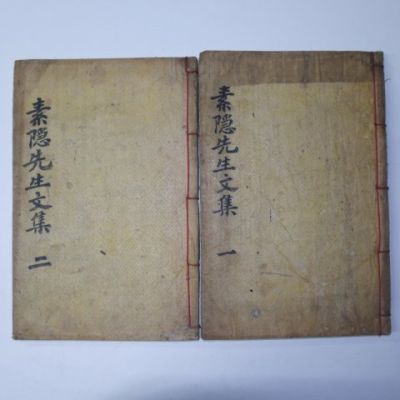 素隠先生文集 一
素隠先生文集 二